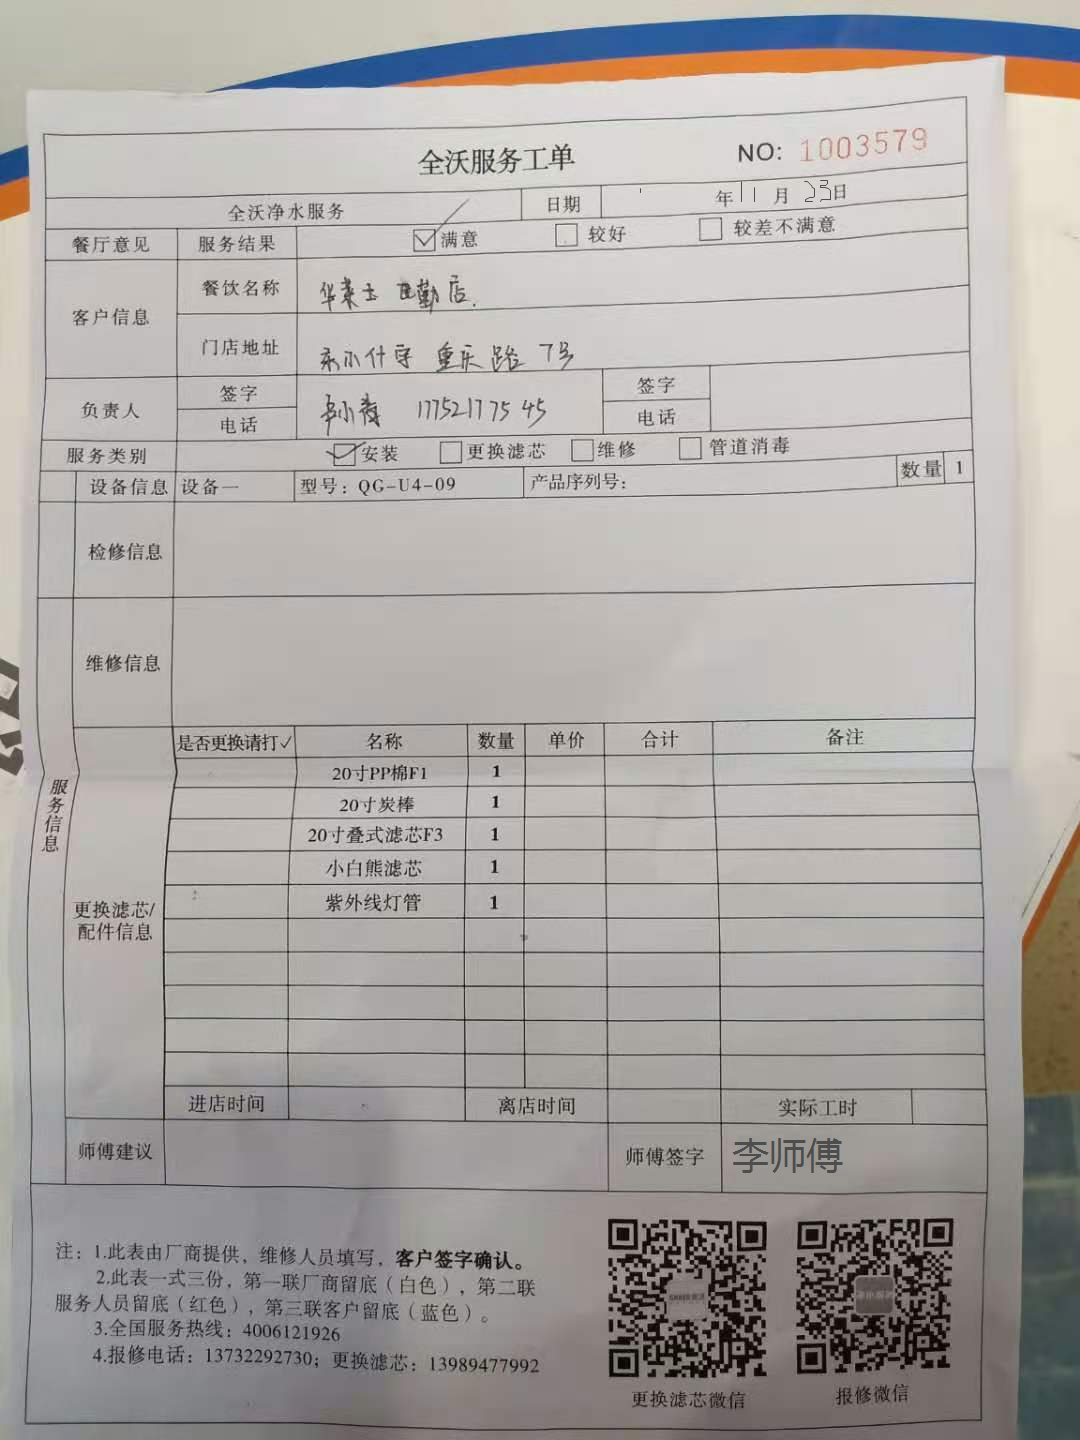 全沃服务工单
NO: 1003579
全沃净水服务 日期 年11月23日
餐厅意见 服务结果 满意 较好 较差不满意
客户信息 餐饮名称 华莱士 店
门店地址 重庆路 7号
负责人 签字 签字
电话 17752177545 电话
服务类别 安装 更换滤芯 维修 管道消毒
设备信息 设备一 型号：QG-U4-09 产品序列号： 数量 1
检修信息
维修信息
服务信息
是否更换请打✓ 名称 数量 单价 合计 备注
20寸PP棉F1 1
20寸炭棒 1
20寸叠式滤芯F3 1
小白熊滤芯 1
紫外线灯管 1
更换滤芯/
配件信息
进店时间 离店时间 实际工时
师傅建议 师傅签字 李师傅
注：1.此表由厂商提供，维修人员填写，客户签字确认。
2.此表一式三份，第一联厂商留底（白色），第二联
服务人员留底（红色），第三联客户留底（蓝色）。
3.全国服务热线：4006121926
4.报修电话：13732292730；更换滤芯：13989477992
更换滤芯微信 报修微信